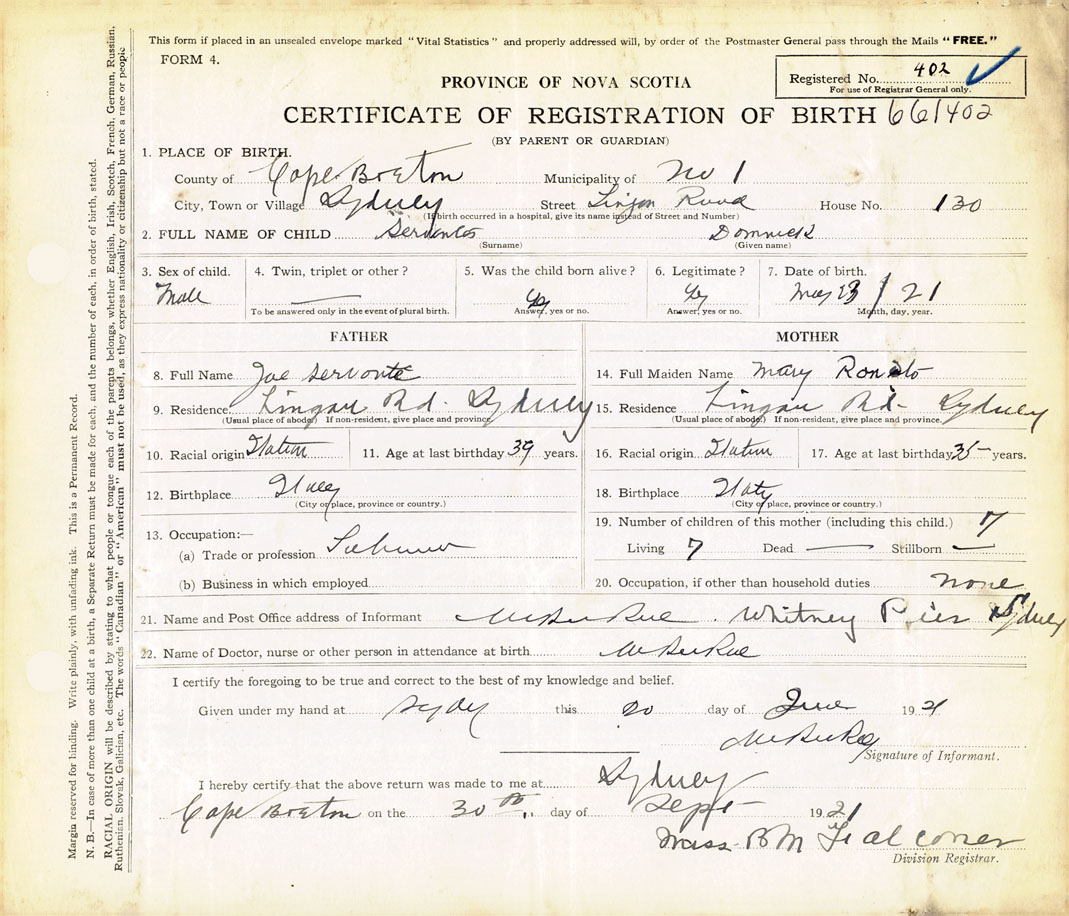 This form if placed in an unsealed envelope marked "Vital Statistics" and properly addressed will, by order of the Postmaster General pass through the Mails "FREE."
FORM 4.
PROVINCE OF NOVA SCOTIA
Registered No. 402
For use of Registrar General only.
CERTIFICATE OF REGISTRATION OF BIRTH 661402
(BY PARENT OR GUARDIAN)
1. PLACE OF BIRTH.
County of Cape Breton Municipality of No 1
City, Town or Village Sydney Street Lingan Road House No. 130
(If birth occurred in a hospital, give its name instead of Street and Number)
2. FULL NAME OF CHILD Servantes Domnick
(Surname) (Given name)
3. Sex of child. 4. Twin, triplet or other? 5. Was the child born alive? 6. Legitimate? 7. Date of birth.
Male — Yes Yes May 23 / 21
To be answered only in the event of plural birth. Answer, yes or no. Answer, yes or no. Month, day, year.
FATHER MOTHER
8. Full Name Joe Servante 14. Full Maiden Name Mary
9. Residence Lingan Rd. Sydney 15. Residence Lingan Rd - Sydney
(Usual place of abode) If non-resident, give place and province. (Usual place of abode) If non-resident, give place and province.
10. Racial origin Italian 11. Age at last birthday 39 years. 16. Racial origin Italian 17. Age at last birthday 35 years.
12. Birthplace Italy 18. Birthplace Italy
(City or place, province or country.) (City or place, province or country.)
13. Occupation:— 19. Number of children of this mother (including this child.) 7
(a) Trade or profession Labourer Living 7 Dead — Stillborn —
(b) Business in which employed 20. Occupation, if other than household duties none
21. Name and Post Office address of Informant Whitney Pier Sydney
22. Name of Doctor, nurse or other person in attendance at birth
I certify the foregoing to be true and correct to the best of my knowledge and belief.
Given under my hand at Sydney this 20 day of June 1921
Signature of Informant.
I hereby certify that the above return was made to me at Sydney
Cape Breton on the 30th day of Sept 1921
Miss B M Falconer
Division Registrar.
Margin reserved for binding. Write plainly, with unfading ink. This is a Permanent Record.
N. B.—In case of more than one child at a birth, a Separate Return must be made for each, and the number of each, in order of birth, stated.
RACIAL ORIGIN will be described by stating to what people or tongue each of the parents belongs, whether English, Irish, Scotch, French, German, Russian,
Ruthenian, Slovak, Galician, etc. The words "Canadian" or "American" must not be used, as they express nationality or citizenship but not a race or people